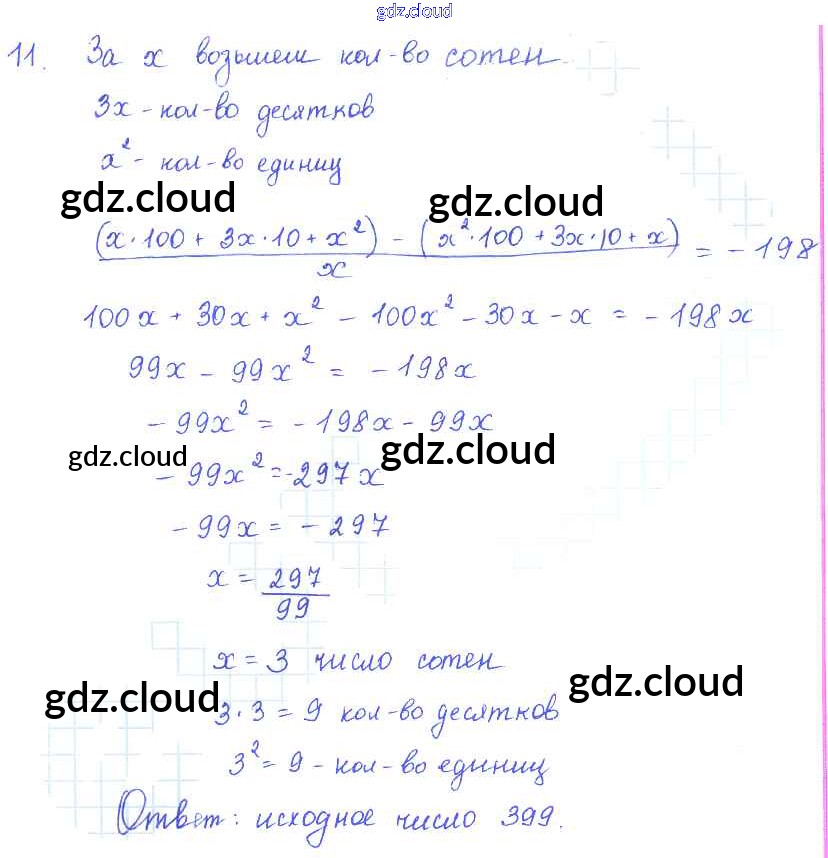 gdz.cloud
11. За x возьмем кол-во сотен.
3x - кол-во десятков
x² - кол-во единиц
gdz.cloud gdz.cloud
(x·100 + 3x·10 + x²) - (x²·100 + 3x·10 + x) / x = - 198
100x + 30x + x² - 100x² - 30x - x = - 198x
99x - 99x² = - 198x
- 99x² = - 198x - 99x
gdz.cloud gdz.cloud
- 99x² = -297x
- 99x = - 297
x = 297 / 99
x = 3 число сотен
gdz.cloud gdz.cloud
3·3 = 9 кол-во десятков
3² = 9 - кол-во единиц
Ответ: исходное число 399.